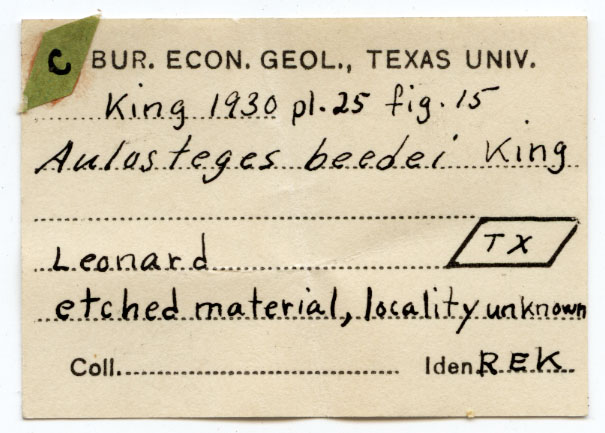 C BUR. ECON. GEOL., TEXAS UNIV.
King 1930 pl. 25 fig. 15
Aulosteges beedei King
Leonard TX
etched material, locality unknown
Coll. Iden. REK